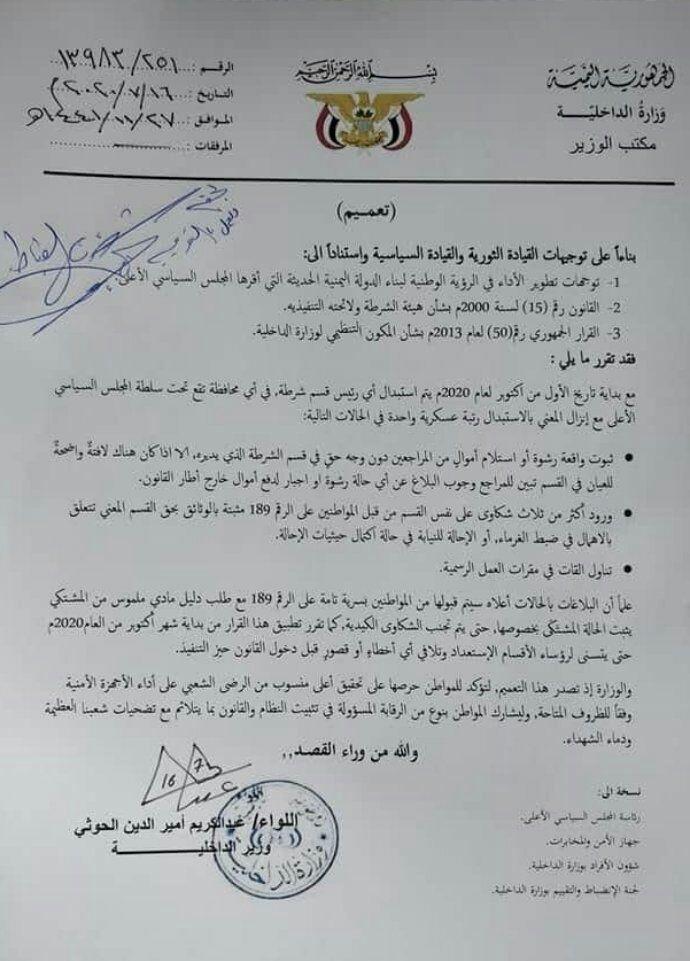 الجمهورية اليمنية
وزارة الداخلية
مكتب الوزير
بسم الله الرحمن الرحيم
الرقم : ١٣٩٨٣/٢٥١
التاريخ : ٢٠٢٠/٧/١٦م
الموافق : ١٤٤١/١١/٢٧هـ
المرفقات :
(تعميم)
بناءاً على توجيهات القيادة الثورية والقيادة السياسية واستناداً الى:
1- توجهات تطوير الأداء في الرؤية الوطنية لبناء الدولة اليمنية الحديثة التي أقرها المجلس السياسي الأعلى.
2- القانون رقم (15) لسنة 2000م بشأن هيئة الشرطة ولائحته التنفيذيه.
3- القرار الجمهوري رقم(50) لعام 2013م بشأن المكون التنظيمي لوزارة الداخلية.
فقد تقرر ما يلي :
مع بداية تاريخ الأول من أكتوبر لعام 2020م يتم استبدال أي رئيس قسم شرطة, في أي محافظة تقع تحت سلطة المجلس السياسي
الأعلى مع إنزال المعني بالاستبدال رتبة عسكرية واحدة في الحالات التالية:
● ثبوت واقعة رشوة أو استلام أموالٍ من المراجعين دون وجه حقٍ في قسم الشرطة الذي يديره, الا اذا كان هناك لافتةٌ واضحةٌ
للعيان في القسم تبين للمراجع وجوب البلاغ عن أي حالة رشوة او اجبار لدفع أموال خارج أطار القانون.
● ورود أكثر من ثلاث شكاوى على نفس القسم من قبل المواطنين على الرقم 189 مثبتة بالوثائق بحق القسم المعني تتعلق
بالاهمال في ضبط الغرماء, أو الإحالة للنيابة في حالة اكتمال حيثيات الإحالة.
● تناول القات في مقرات العمل الرسمية.
علماً أن البلاغات بالحالات أعلاه سيتم قبولها من المواطنين بسرية تامة على الرقم 189 مع طلب دليل مادي ملموس من المشتكي
يثبت الحالة المشتكى بخصوصها, حتى يتم تجنب الشكاوى الكيدية, كما تقرر تطبيق هذا القرار من بداية شهر أكتوبر من العام2020م
حتى يتسنى لرؤساء الأقسام الإستعداد وتلافي أي أخطاءٍ أو قصورٍ قبل دخول القانون حيز التنفيذ.
والوزارة إذ تصدر هذا التعميم, لتؤكد للمواطن حرصها على تحقيق أعلى منسوب من الرضى الشعبي على أداء الأجهزة الأمنية
وفقاً للظروف المتاحة, وليشارك المواطن بنوع من الرقابة المسؤولة في تثبيت النظام والقانون بما يتلائم مع تضحيات شعبنا العظيمة
ودماء الشهداء.
والله من وراء القصد,,
16/7
اللواء/ عبدالكريم أمير الدين الحوثي
وزير الداخلية
نسخة الى:
رئاسة المجلس السياسي الأعلى.
جهاز الأمن والمخابرات.
شؤون الأفراد بوزارة الداخلية.
لجنة الإنضباط والتقييم بوزارة الداخلية.